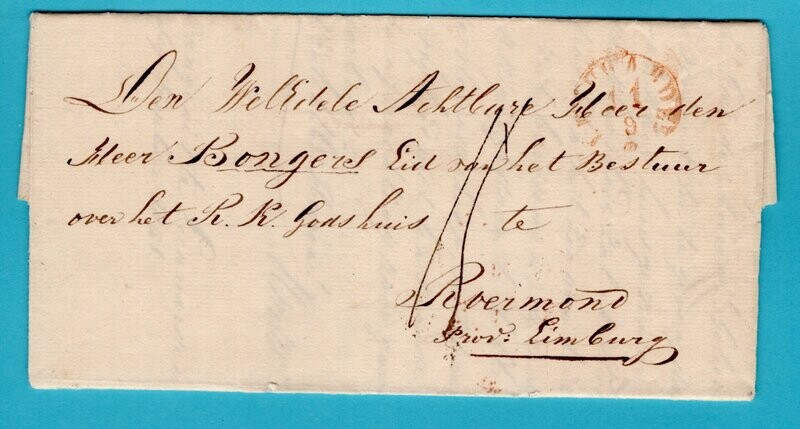 Den WelEdele Achtbare Heer den
Heer Bongers Lid van het Bestuur
over het R. K. Godshuis te
Roermond
Prov: Limburg